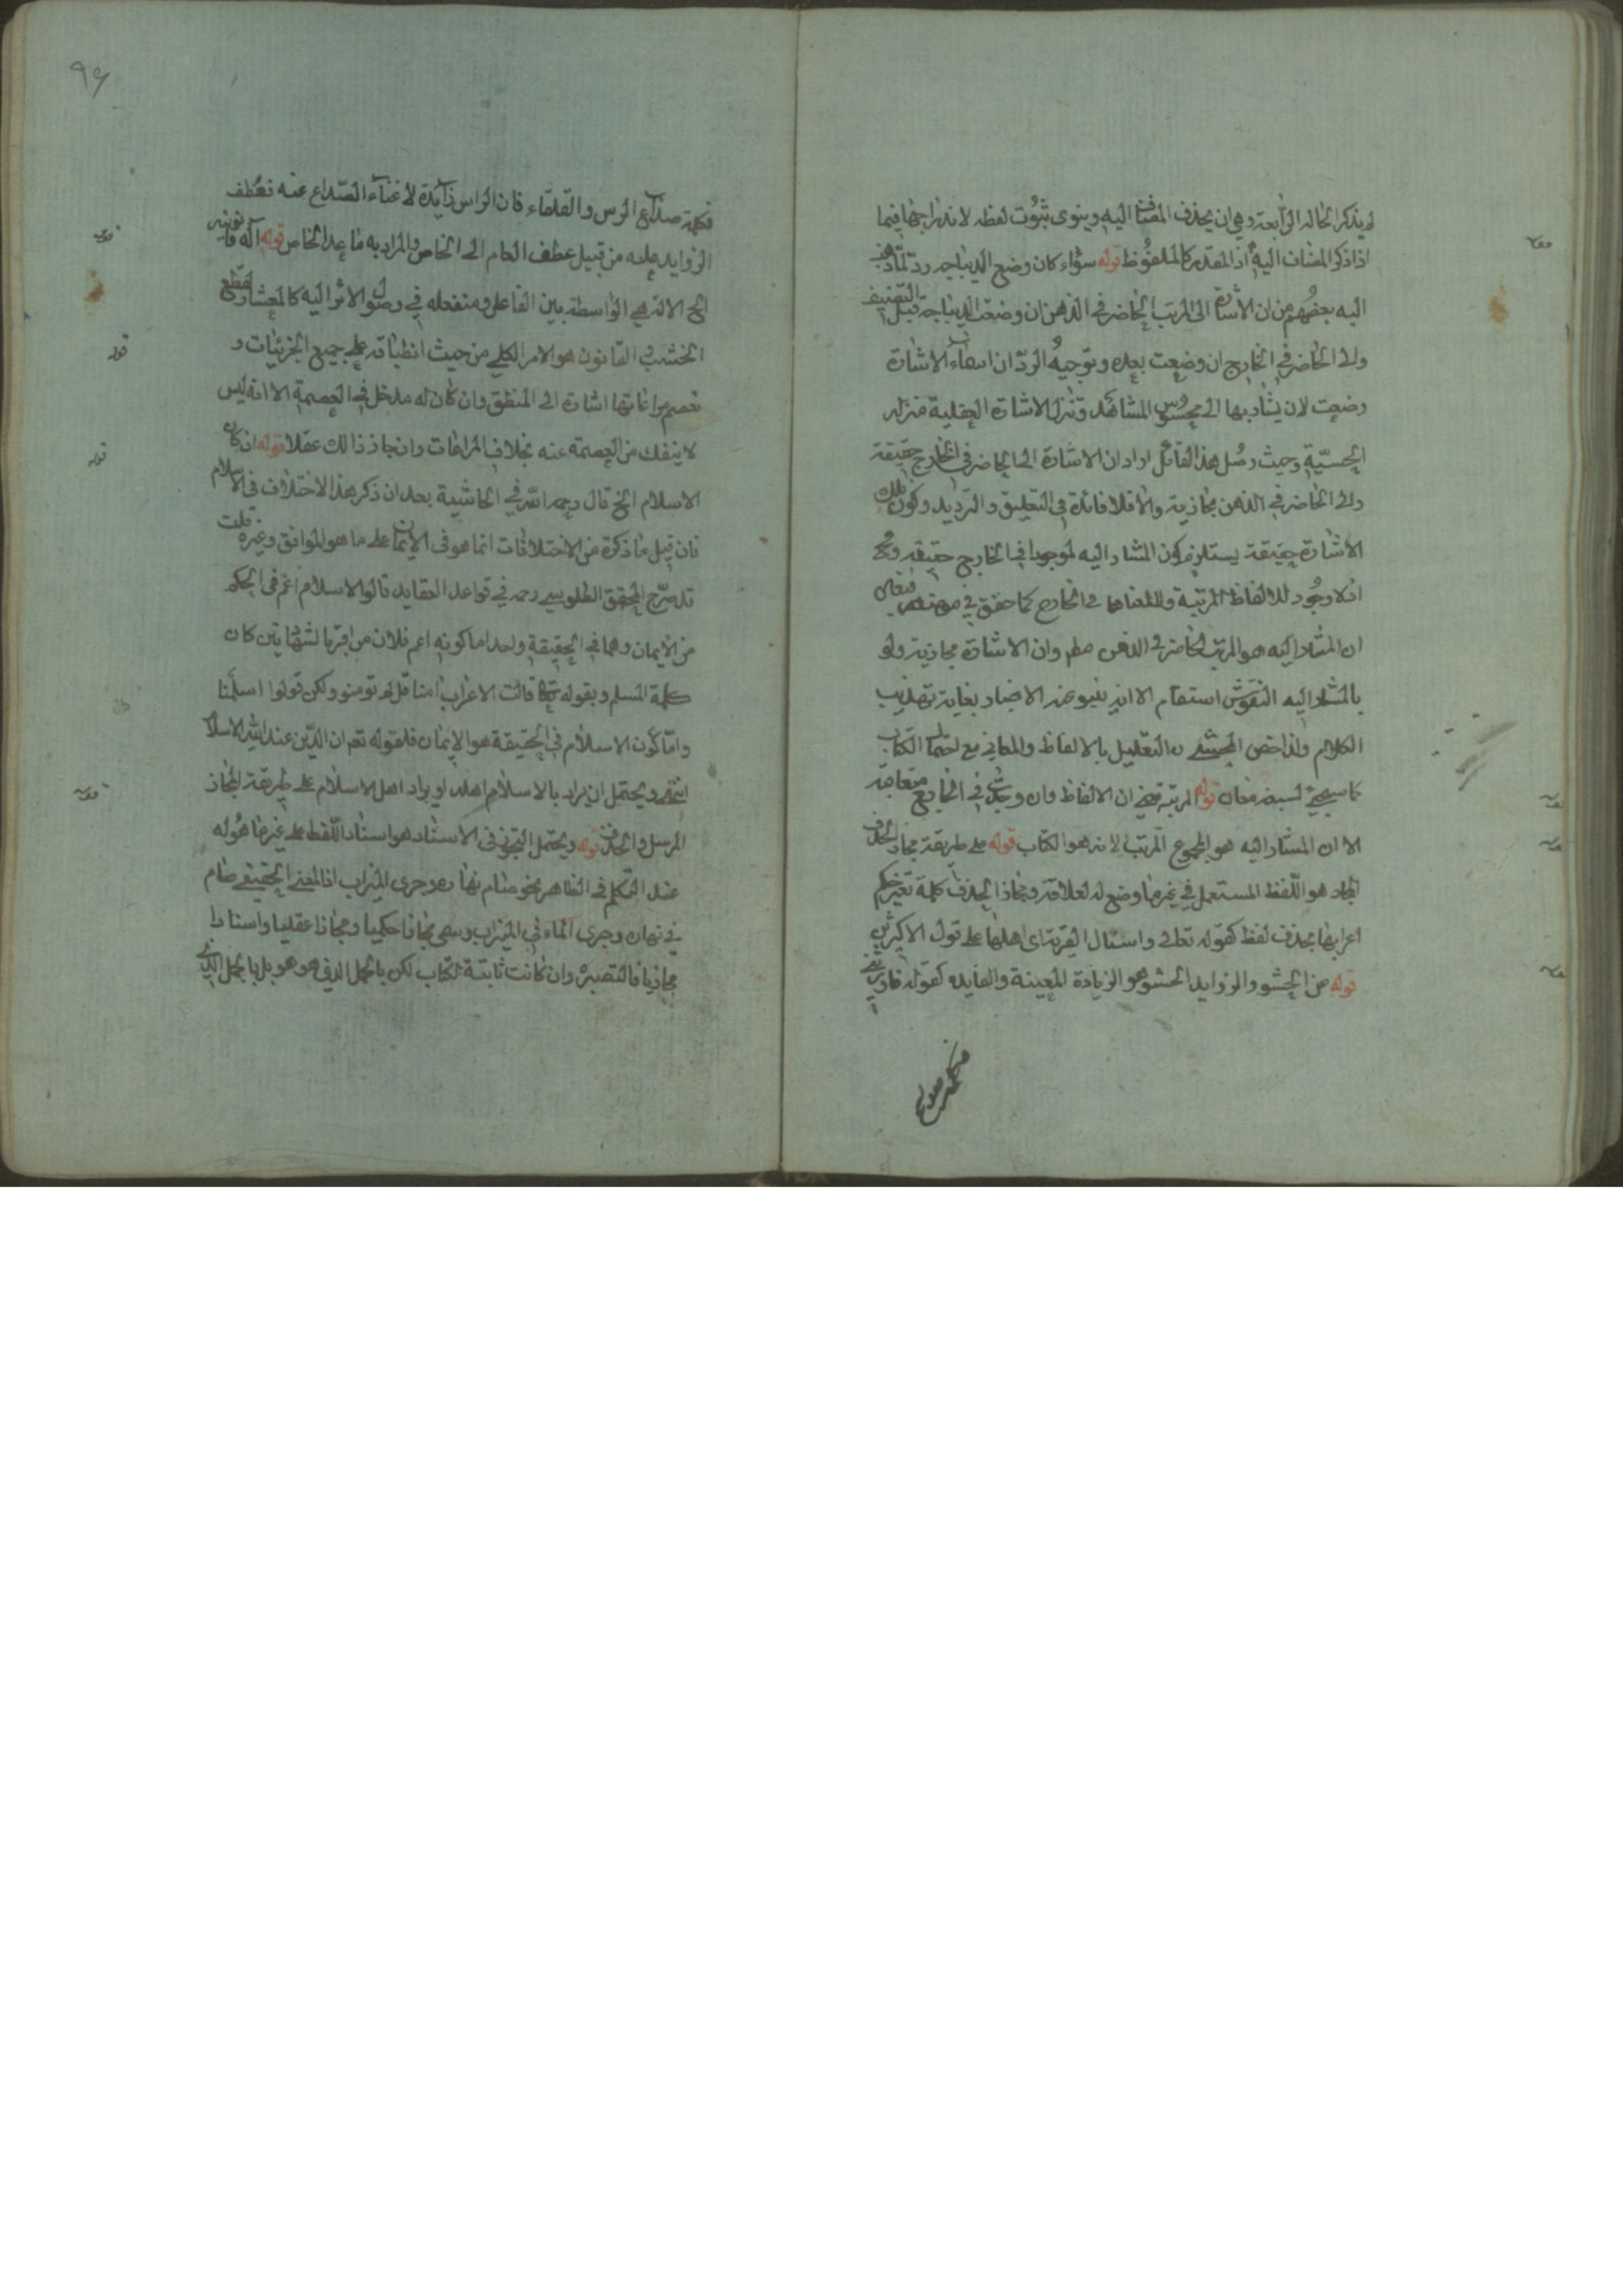 لم يذكر الحالة الرابعة وهي ان يحذف المضاف اليه وينوى ثبوت لفظه لاندراجها فيما
اذا ذكر المضاف اليه اذ المقدر كالملفوظ قوله سواء كان وضع الديباجه رد لما ذهب
اليه بعضهم من ان الاشارة الى المرتب الحاضر في الذهن ان وضعت الديباجة قبل التصنيف
والى الحاضر في الخارج ان وضعت بعده وتوجيه الرد ان اسماء الاشارة
وضعت لان يشار بها الى محسوس المشاهد وتنزل الاشارة العقلية منزله
الحسية وحيث وصل هذا القائل اراد ان الاشارة الى الحاضر في الخارج حقيقة
والى الحاضر في الذهن مجازية والا فلا فائدة في التعليق والترديد وكون تلك
الاشارة حقيقة يستلزم كون المشار اليه موجودا في الخارج حقيقه
اذ لا وجود للالفاظ المرتبة ولا لمعناها في الخارج كما حقق في موضعه
ان المشار اليه هو المرتب الحاضر في الذهن وان الاشارة مجازية ولو
بالمشار اليه النقوش استقام الا انه ينبو عنه الاخبار بغاية تهذيب
الكلام ولذا خص المحشى التعليل بالالفاظ والمعاني مع احتمال الكتاب
كما سيجيئ لسبعة معان قوله المرتبة ان الالفاظ وان وجدت في الخارج متعاقبة
الا ان المشار اليه هو المجموع المرتب لانه هو الكتاب قوله على طريقة مجاز الحذف
المجاز هو اللفظ المستعمل في غير ما وضع له لعلاقة ومجاز الحذف كلمة تغير حكم
اعرابها بحذف لفظ كقوله تعالى واسئال القرية اى اهلها على قول الاكثرين
قوله من الحشو والزوايد الحشو هو الزيادة المعينة والفايده كقوله
٩۶
صداع الرس والقلقاء فان الراس زايدة لاغناء الصداع عنه فعطف
الزوايد عليه من قبيل عطف العام الى الخاص والمراد به ما عدا الخاص قوله آله قانونيه
الخ الالة هي الواسطة بين الفاعل ومنفعله في وصول الاثر اليه كالمنشار لقطع
الخشب والقانون هو الامر الكلي من حيث انطباقه على جميع الجزئيات و
تعصم مراعاتها اشارة الى المنطق وان كان له مدخل في العصمة الا انه ليس
لا ينفك من العصمة عنه بخلاف المراعات وان جاز ذالك عقلا قوله ان كان
الاسلام الخ قال رحمه الله في الحاشية بعد ان ذكر هذا الاختلاف في الاسلام
فان قيل ما ذكرة من الاختلافات انما هو في الايمان على ما هو المواقف وغيره قلت
قد صرح المحقق الطوسي رحمه في قواعد العقايد قالوا الاسلام اعم في الحكم
من الايمان وهما في الحقيقة واحد اما كونه اعم فلان من اقر بالشهادتين كان
حكمه المسلم وبقوله تعالى قالت الاعراب امنا قل لم تومنو ولكن قولوا اسلمنا
واما كون الاسلام في الحقيقة هو الايمان فلقوله تعم ان الدين عند الله الاسلام
انتهى ويحتمل ان يراد بالاسلام اهله او يراد اهل الاسلام على طريقة المجاز
المرسل والحذف قوله ويحتمل التجوز في الاسناد هو اسناد اللفظ على غير ما هو له
عند المتكلم في الظاهر نحو صام نهاره وجرى الميزاب اذ المعنى الحقيقي صام
في نهاره وجرى الماء في الميزاب ويسمى مجازا حكميا ومجازا عقليا واسنادا
مجازيا فالتبصره وان كانت ثابتة للكتاب لكن بالحمل الذى هو هو بل بالحمل